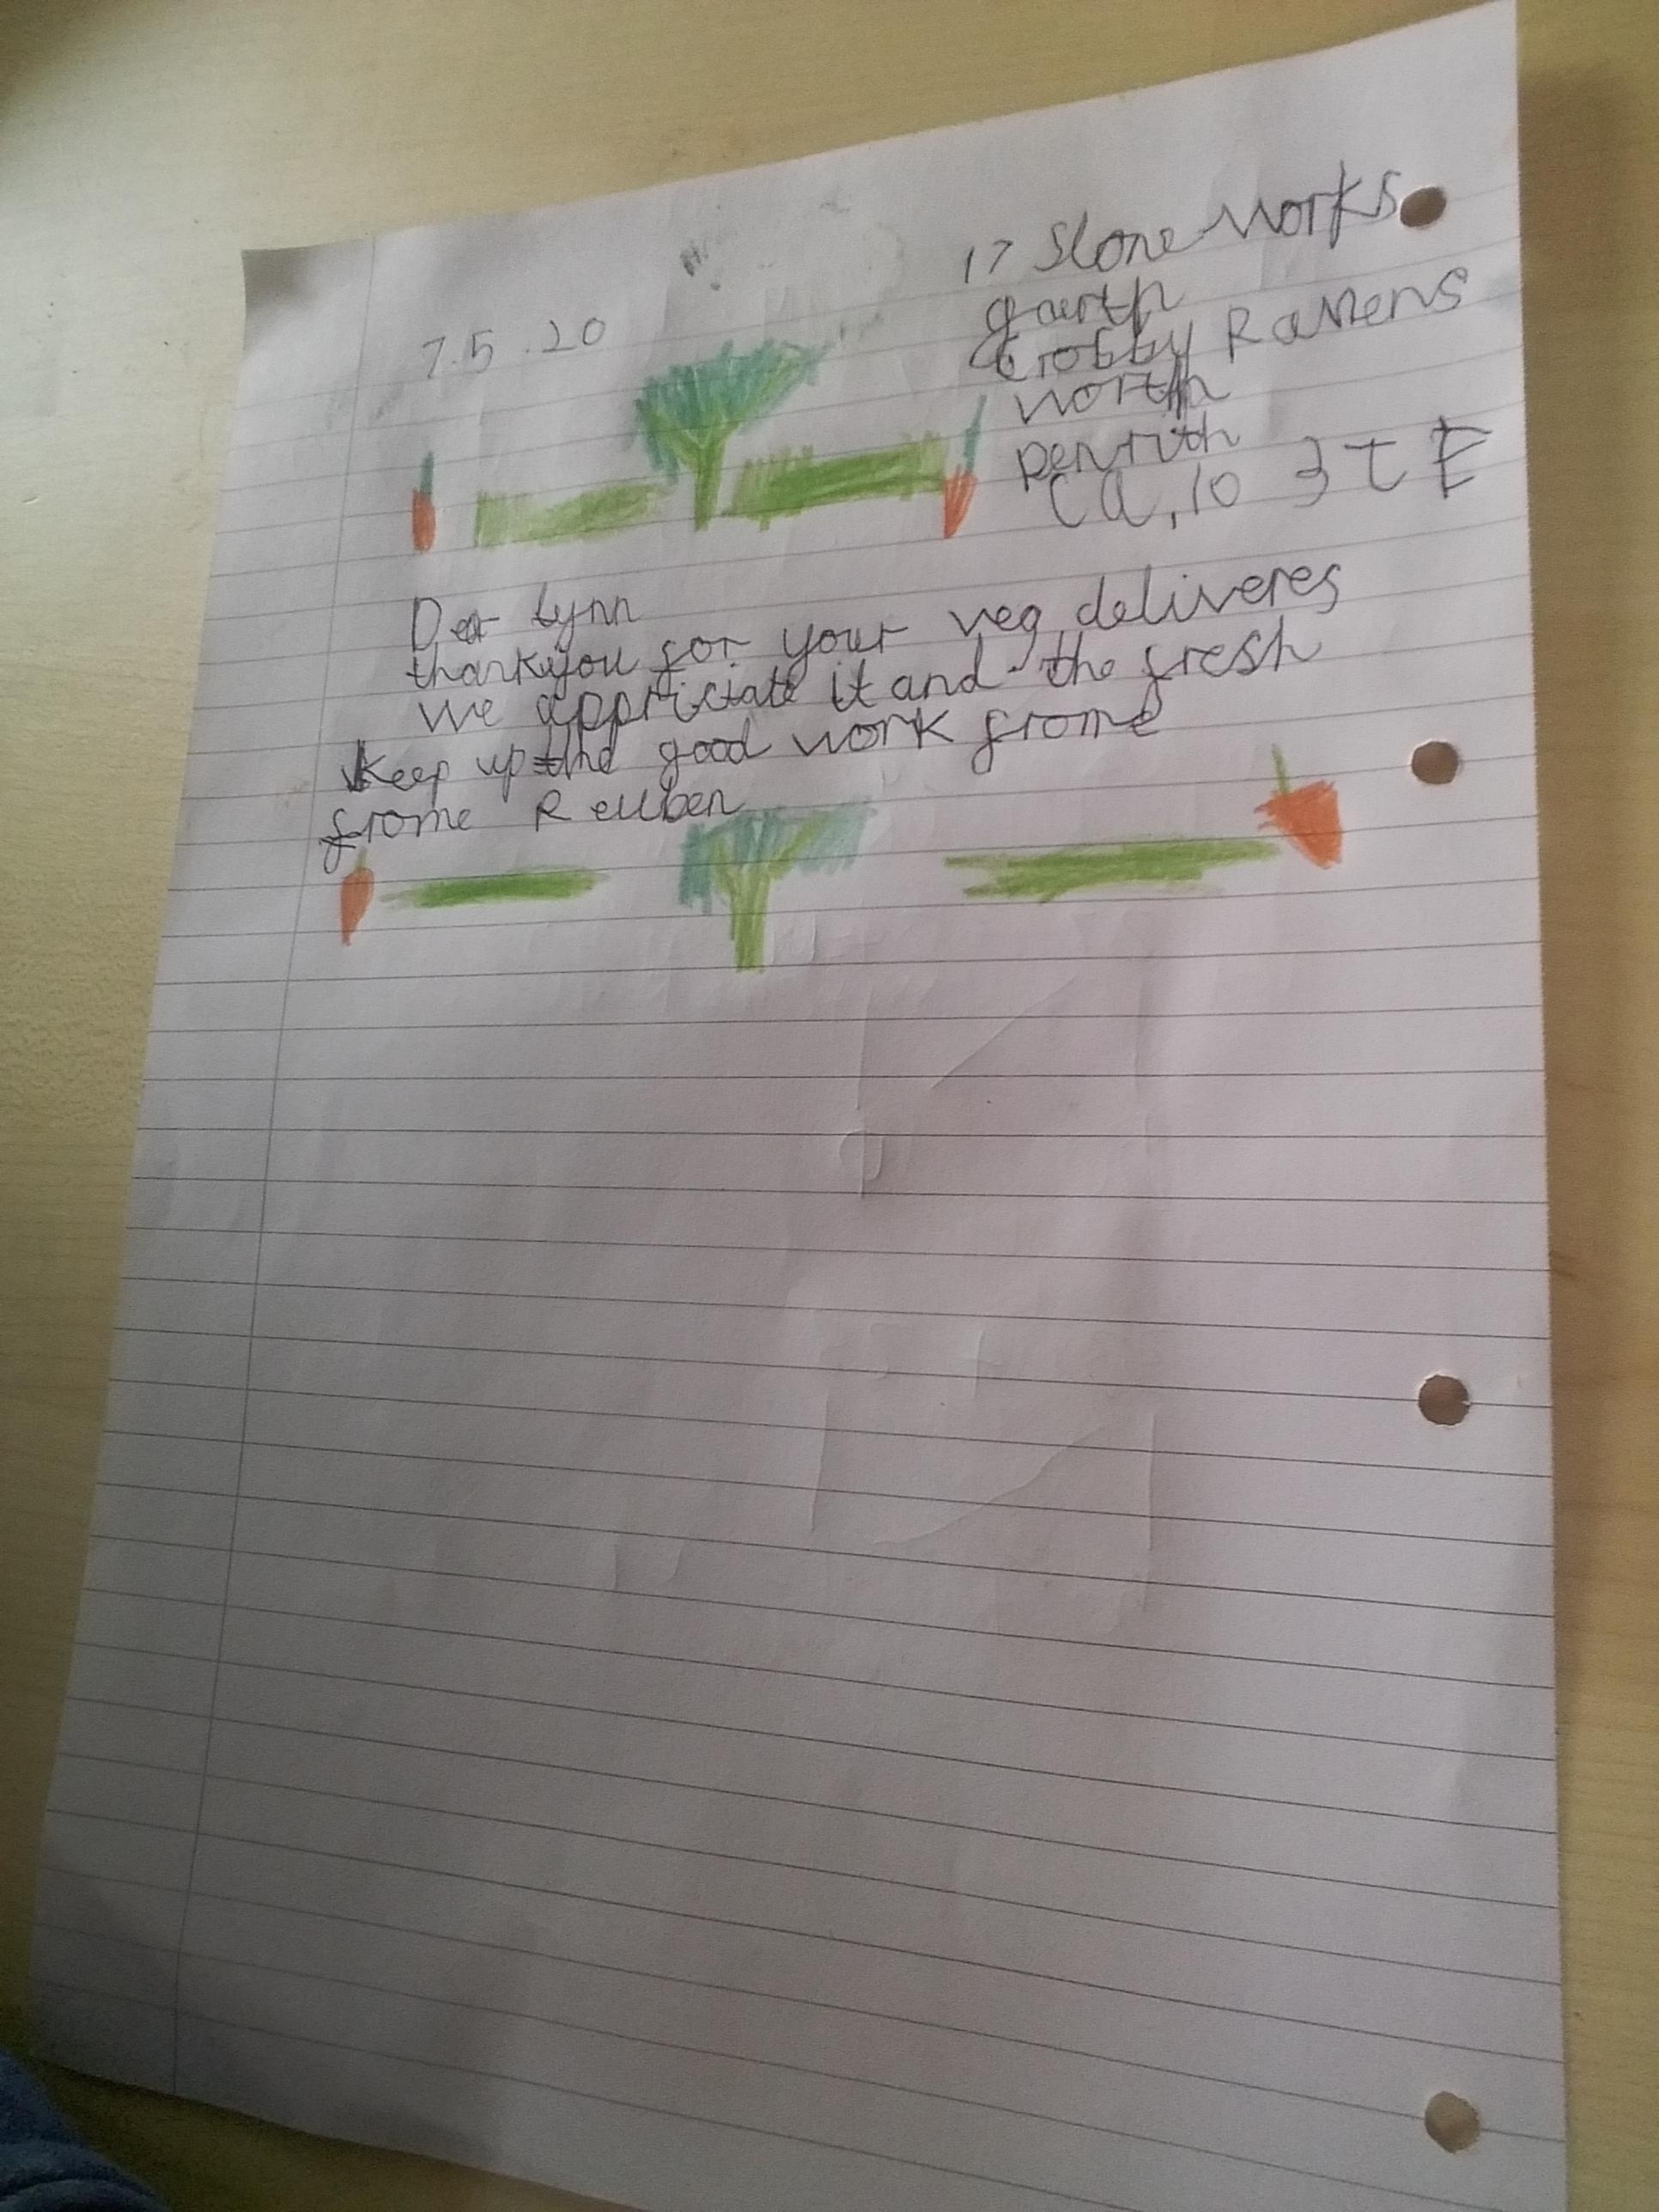 17 Stone Works
garth
crobby Ravens
worth
penrith
Ca,10 3 t E
7.5.20
Dear Lynn
thankyou for your veg deliveres
we appriciate it and the fresh
Keep up the good work frome
frome Reuben